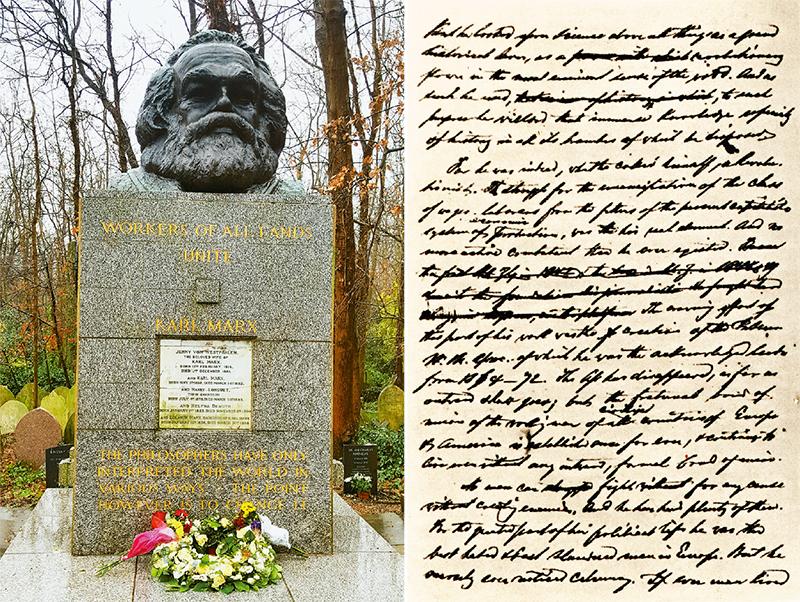 WORKERS OF ALL LANDS
UNITE
KARL MARX
JENNY VON WESTPHALEN,
THE BELOVED WIFE OF
KARL MARX.
BORN 12TH FEBRUARY 1814,
DIED 2ND DECEMBER 1881.
AND KARL MARX.
BORN MAY 5TH 1818, DIED MARCH 14TH 1883.
AND HARRY LONGUET,
THEIR GRANDSON.
BORN JULY 4TH 1878, DIED MARCH 20TH 1883.
AND HELENA DEMUTH.
THE PHILOSOPHERS HAVE ONLY
INTERPRETED THE WORLD IN
VARIOUS WAYS · THE POINT
HOWEVER IS TO CHANGE IT
he looked upon science above all things as a grand
historical lever, as a revolutionary
power in the most eminent sense of the word. And as
such he used, to such
purpose he wielded that immense knowledge especially
of history in all its branches of which he disposed
For he was indeed, what he called himself, a Revolu-
tionist. The struggle for the emancipation of the class
of wages-labourers from the fetters of the present capitalist
system of economic production, was his real element. And no
more active combatant than he ever existed.
The crowning effort of
this part of his work was the creation of the
W. M. Assn. of which he was the acknowledged leader
from 1864–72. The has disappeared, as far as
outward show goes; but the fraternal bond of
union of the working men of all civilized countries of Europe
& America is established once for ever, & continues to
live even without any outward, formal bond of union.
No man can fight for any cause
without creating enemies. And he has had plenty of them.
For the greater part of his political life he was the
best hated & best slandered man in Europe. But he
scarcely ever noticed calumny. If ever man lived